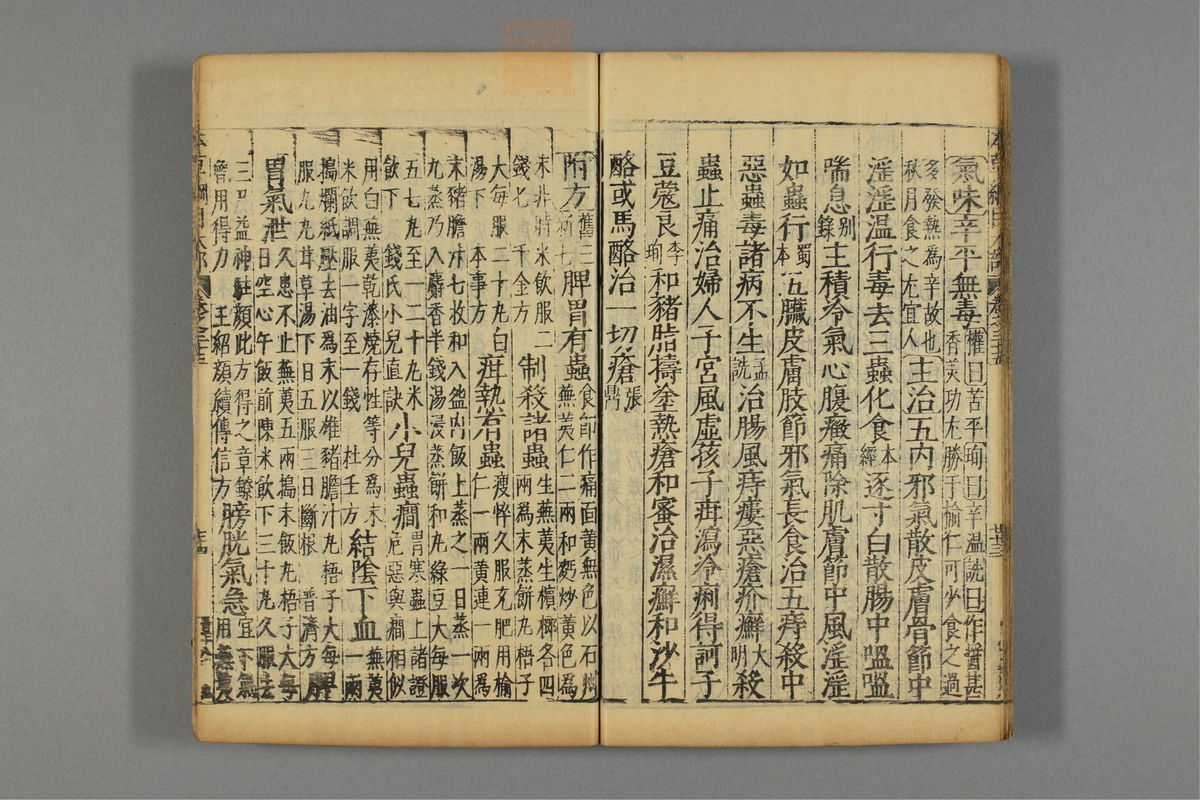 本草綱目木部 卷之三十五 廿三
氣味辛平無毒權曰苦平珣曰辛温詵曰作醬甚香美功尤勝于榆仁可少食之過
多發熱爲辛故也秋月食之尤宜人主治五内邪氣散皮膚骨節中
淫淫温行毒去三蟲化食本經逐寸白散腸中嗢嗢
喘息别錄主積冷氣心腹癥痛除肌膚節中風淫淫
如蟲行蜀本五臟皮膚肢節邪氣長食治五痔殺中
惡蟲毒諸病不生孟詵治腸風痔瘻惡瘡疥癬大明殺
蟲止痛治婦人子宮風虛孩子疳瀉冷痢得訶子
豆蔻良李珣和豬脂擣塗熱瘡和蜜治濕癬和沙牛
酪或馬酪治一切瘡張鼎
附方舊三新七脾胃有蟲食即作痛面黃無色以石州蕪荑仁二兩和麪炒黃色爲
末非時米飲服二錢匕 千金方制殺諸蟲生蕪荑生檳榔各四兩爲末蒸餅丸梧子
大每服二十丸白湯下 本事方疳熱有蟲瘦悴久服充肥用榆仁一兩黃連一兩爲
末豬膽汁七枚和入盌内飯上蒸之一日蒸一次九蒸乃入麝香半錢湯浸蒸餅和丸綠豆大每服
五七丸至一二十丸米飲下 錢氏小兒直訣小兒蟲癇胃寒蟲上諸證危惡與癇相似
用白蕪荑乾漆燒存性等分爲末米飲調服一字至一錢 杜壬方結陰下血蕪荑一兩
搗爛紙壓去油爲末以雄豬膽汁丸梧子大每服九丸甘草湯下日五服三日斷根 普濟方脾
胃氣泄久患不止蕪荑五兩搗末飯丸梧子大每日空心午飯前陳米飲下三十丸久服去
三尸益神駐顏此方得之章鐐曾用得力 王紹顏續傳信方膀胱氣急宜下氣用蕪荑
本草綱目木部 卷之三十五